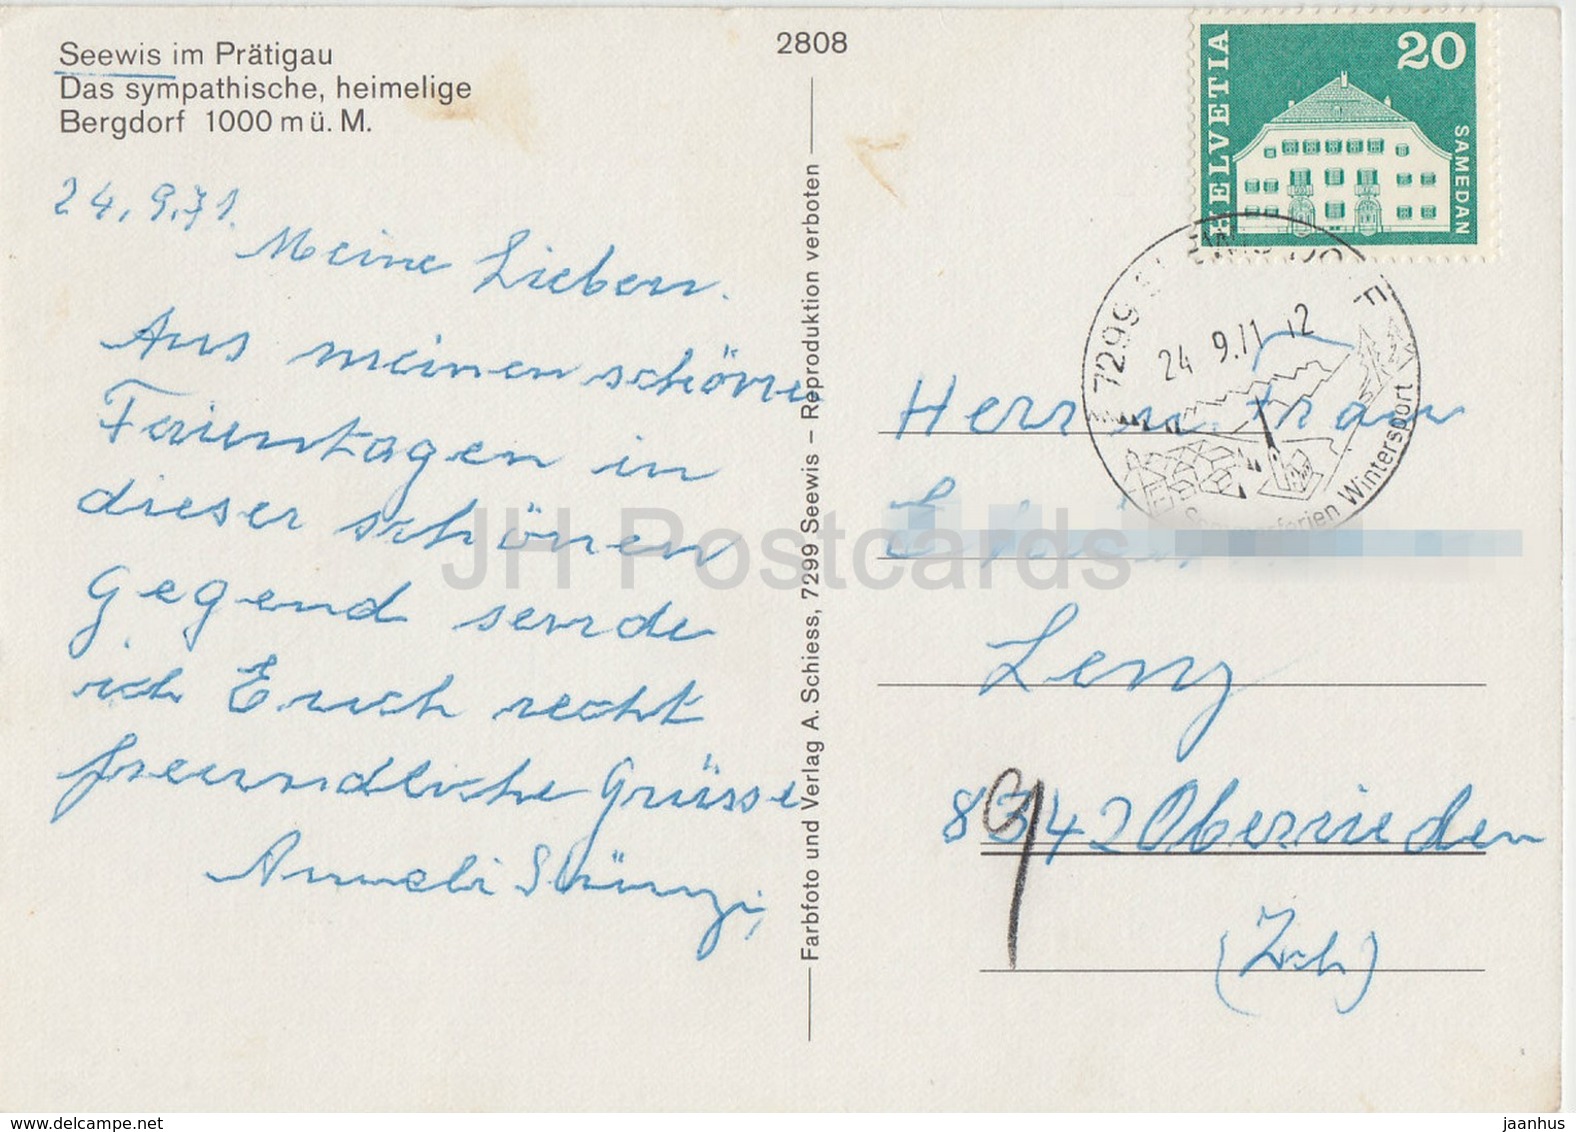 Seewis im Prätigau
Das sympathische, heimelige
Bergdorf 1000 m ü. M.
2808
24.9.71.
Meine Lieben.
Aus meinen schönen
Ferientagen in
dieser schönen
Gegend sende
ich Euch recht
freundliche Grüsse
Anneli Stünzi,
Farbfoto und Verlag A. Schiess, 7299 Seewis – Reproduktion verboten
HELVETIA
20
SAMEDAN
7299
24 9.71 12
Sommerferien Wintersport
Herr u. Frau
Lenz
8942 Oberrieden
(Zch)
JH Postcards
jaanhus.delcampe.net
jaanhus